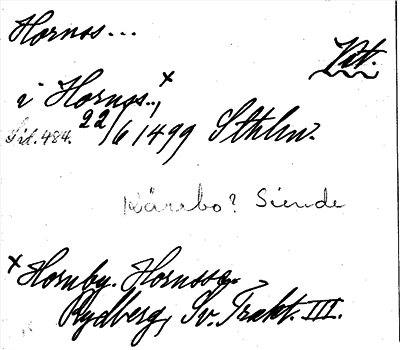 Hornos...
Vit.
i Hornos..,x
Sid. 484. 22/6 1499 Sthlm.
Kärebo? Siende
x Hornby. Hornsse.
Rydberg, Sv. Trakt. III.